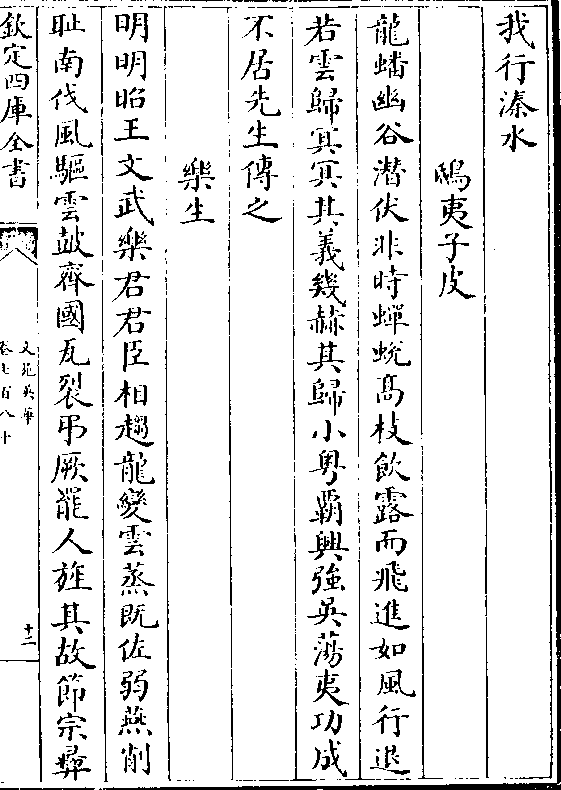 我行溱水
鴟夷子皮
龍蟠幽谷潜伏非時蟬蛻髙枝飲露而飛進如風行退
若雲歸冥冥其義幾赫其歸小粤覇興強吳蕩夷功成
不居先生傳之
樂生
明明昭王文武樂君君臣相趨龍變雲蒸既佐弱燕削
耻南伐風驅雲鼓齊國瓦裂弔厥罷人旌其故節宗彛
欽定四庫全書
文苑英華
卷七百八十
十二